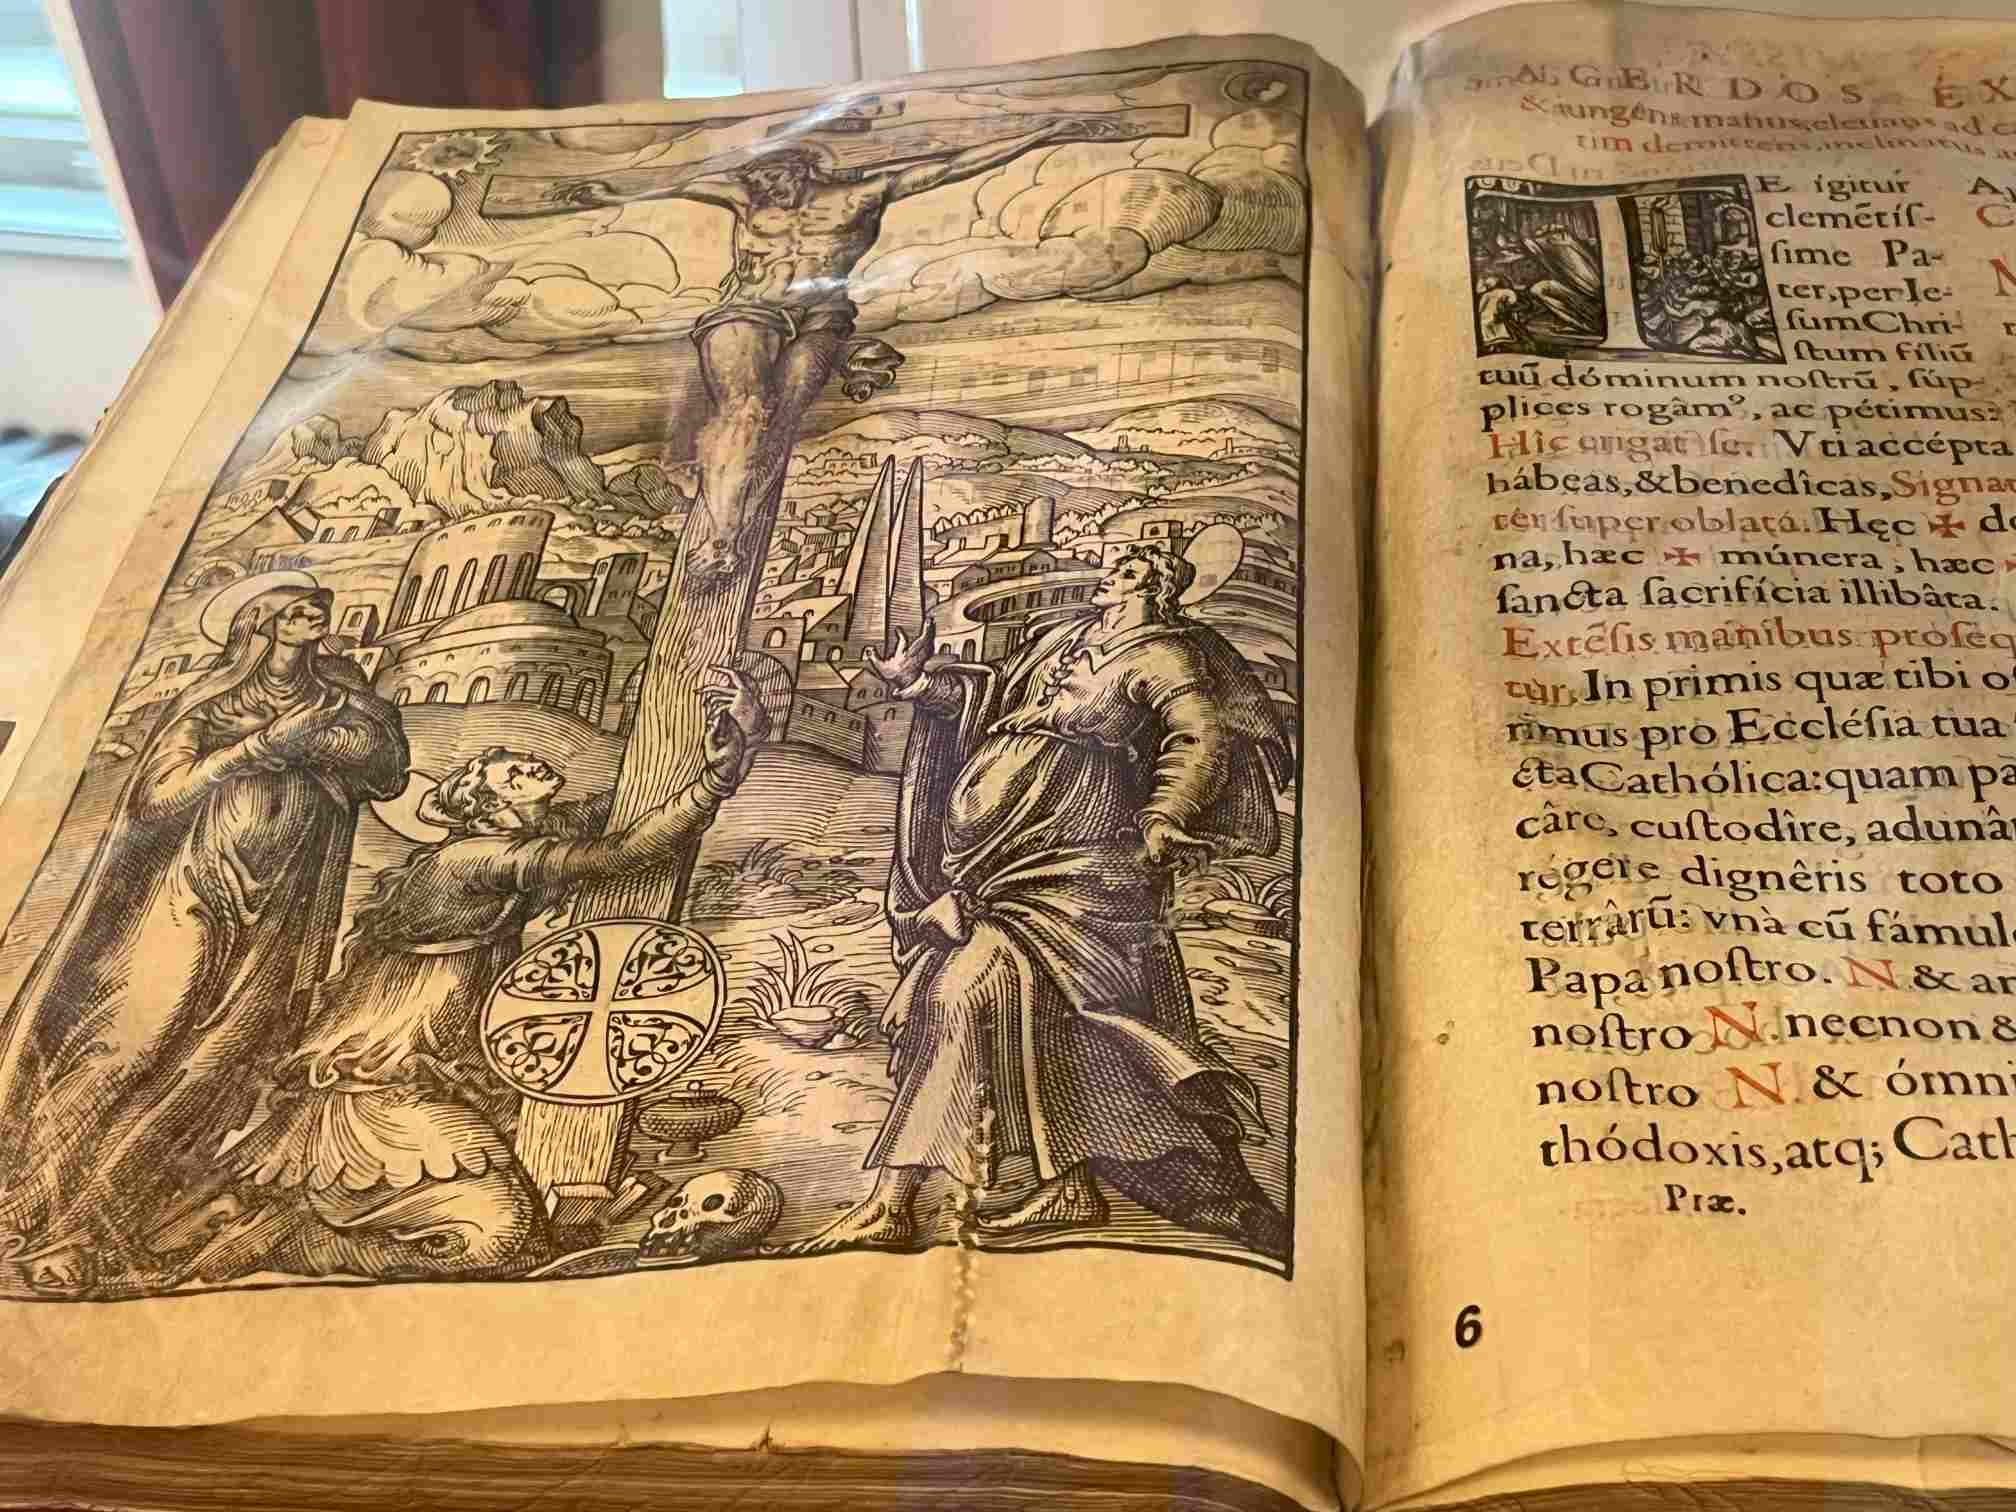 SACERDOS EX
& iungens manus, eleuans ad c
tim demittens, inclinatus
E ígitur
clemẽtiſ-
ſime Pa-
ter, per Ie-
ſum Chri-
ſtum fíliũ
tuũ dóminum noſtrũ, ſúp-
plices rogâmꝰ, ac pétimus:
Hîc erigat ſe. Vti accépta
hábeas, & benedîcas, Signat
ter ſuper oblatá. Hęc ✠ d
na, hæc ✠ múnera, hæc
ſancta ſacrifícia illibâta.
Extẽſis manibus proſeq
tur, In primis quæ tibi of
rimus pro Eccléſia tua
cta Cathólica: quam pa
câre, cuſtodîre, adunâ
régere dignêris toto
terrârũ: vnà cũ fámul
Papa noſtro. N & an
noſtro N. necnon &
noſtro N. & ómni
thódoxis, atq; Cath
Præ.
6